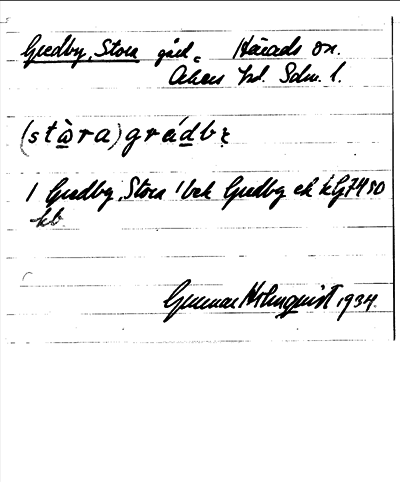 Gredby, Stora gård. Härads sn.
Åkers hd. Sdm. l.
(stòra)grádby
1 Gredby, Stora 1 bek Gredby ek
kb
Gunnar Holmquist 1934.